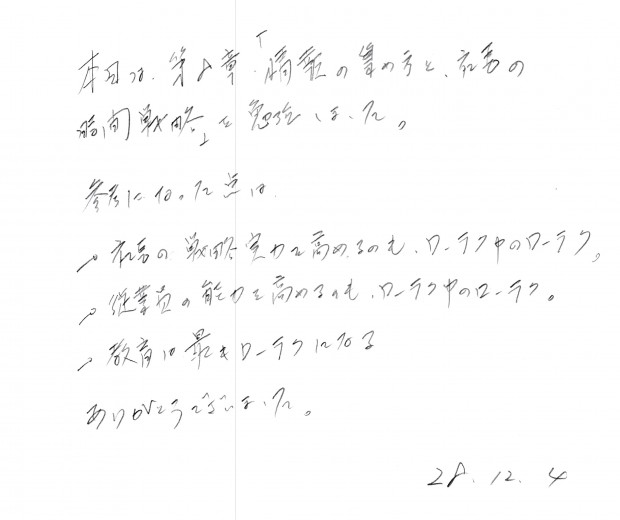 本日は、第8章「情報の集め方と、社長の
時間戦略」を勉強しました。
参考になった点は
・社長の戦略実力を高めるのも、ローテク中のローテク、
・従業員の能力を高めるのも、ローテク中のローテク。
・教育は最もローテクになる
ありがとうございました。
28.12.4